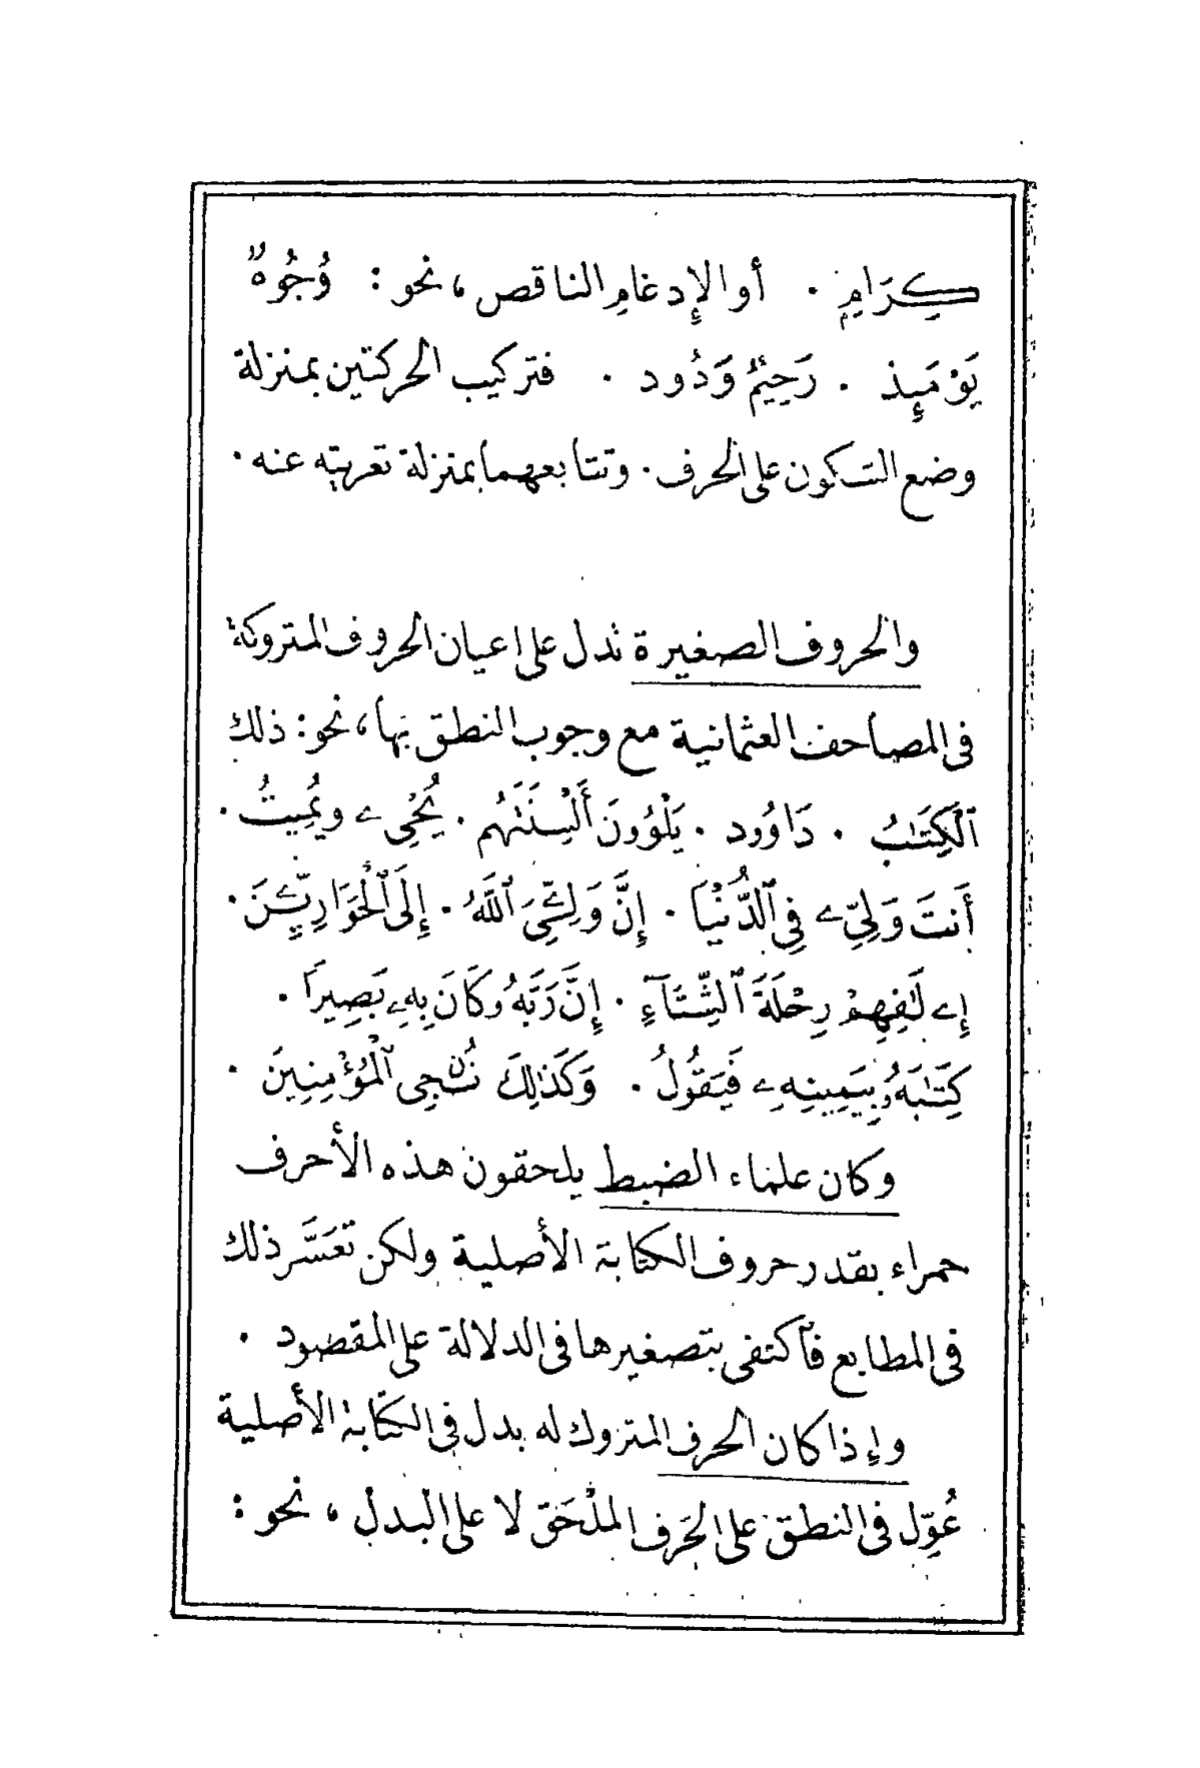 كِرَامٍ . أو الإِدغامِ الناقص ، نحو : وُجُوهٌ
يَوْمَئِذ . رَحِيمٌ وَدُود . فتركيب الحركتين بمنزلة
وضع السكون على الحرف . وتتابعهما بمنزلة تعريته عنه .
والحروف الصغيرة تدل على اعيان الحروف المتروكة
فى المصاحف العثمانية مع وجوب النطق بها ، نحو : ذلك
ٱلْكِتَٰبُ . دَاوُۥد . يَلْوُۥنَ أَلْسِنَتَهُم . يُحْىِۦ ويُمِيتُ .
أَنتَ وَلِىِّۦ فِى ٱلدُّنْيَا . إِنَّ وَلِـِّۧىَ ٱللَّهُ . إِلَى ٱلْحَوَارِيِّـۧنَ .
إِۦلَٰفِهِمْ رِحْلَةَ ٱلشِّتَآءِ . إِنَّ رَبَّهُۥ كَانَ بِهِۦ بَصِيرًا .
كِتَٰبَهُۥ بِيَمِينِهِۦ فَيَقُولُ . وَكَذَٰلِكَ نُـۨجِى ٱلْمُؤْمِنِينَ .
وكان علماء الضبط يلحقون هذه الأحرف
حمراء بقدر حروف الكتابة الأصلية ولكن تعَسَّر ذلك
فى المطابع فٱكتفى بتصغيرها فى الدلالة على المقصود .
وإذا كان الحرف المتروك له بدل فى الكتابة الأصلية
عُوِّل فى النطق على الحَرف الملْحَق لا على البدل ، نحو :